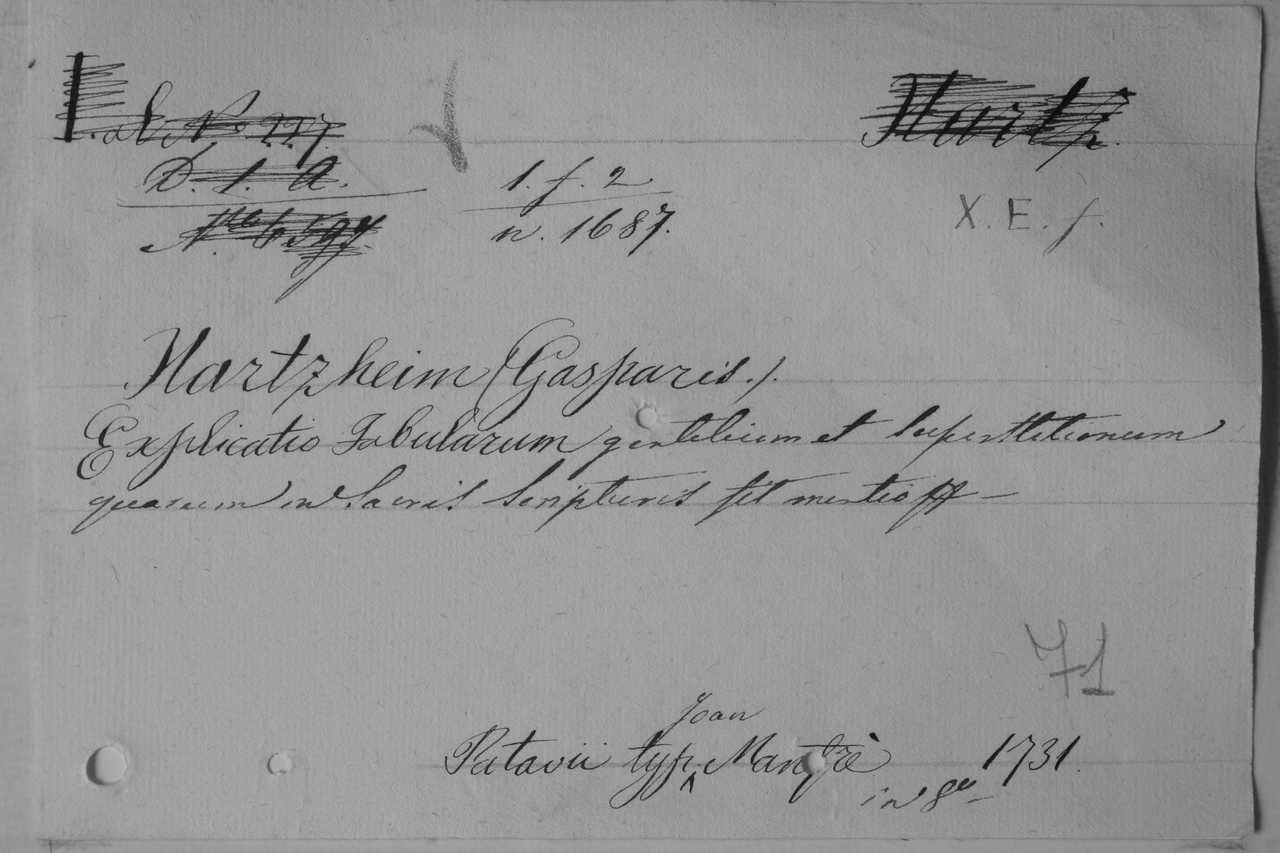 D. 1. A.
1. f. 2
n. 1687.
Hartz.
X. E. f.
Hartzheim (Gasparis.).
Explicatio Fabularum gentilium et superstitionum
quarum in Sacris Scripturis fit mentio
71
Joan
Patavii typ. Manfrè 1731.
in 8º